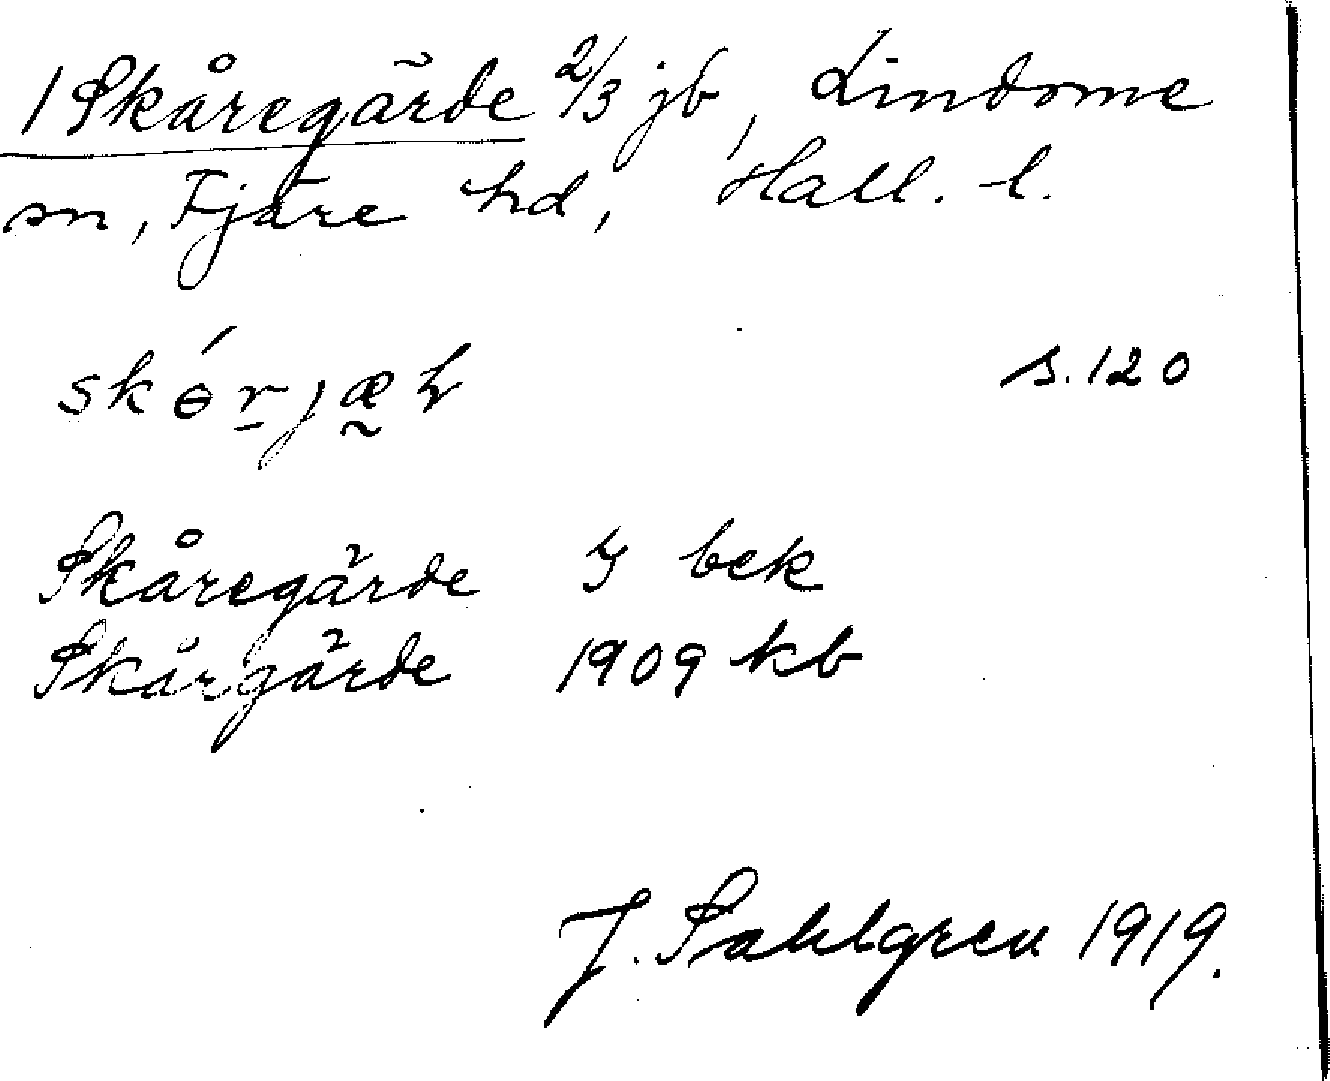 1 Skåregärde 2/3 jb, Lindome
sn, Fjäre hd, Hall. l.
skɵ́rjæḷ s.120
Skåregärde Y bek
Skårgärde 1909 kb
J. Sahlgren 1919.